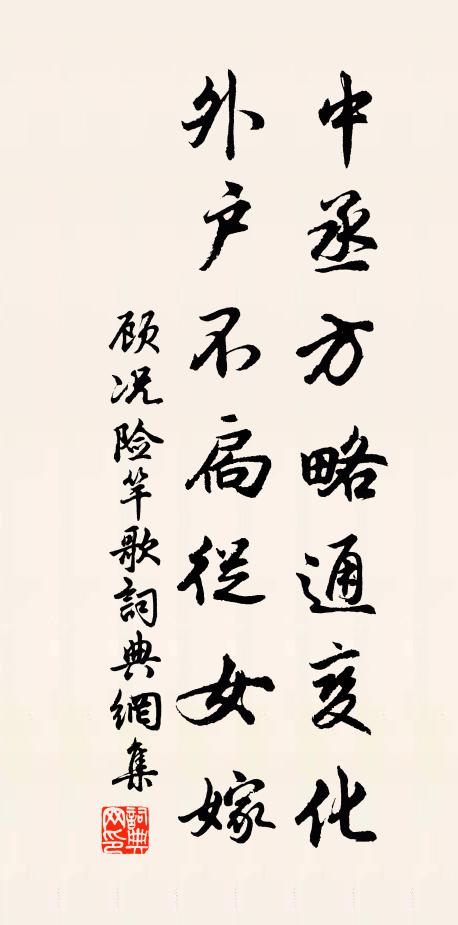 中丞方略通变化
外户不扃從女嫁
顾况险竿歌詞典網集
詞典网印